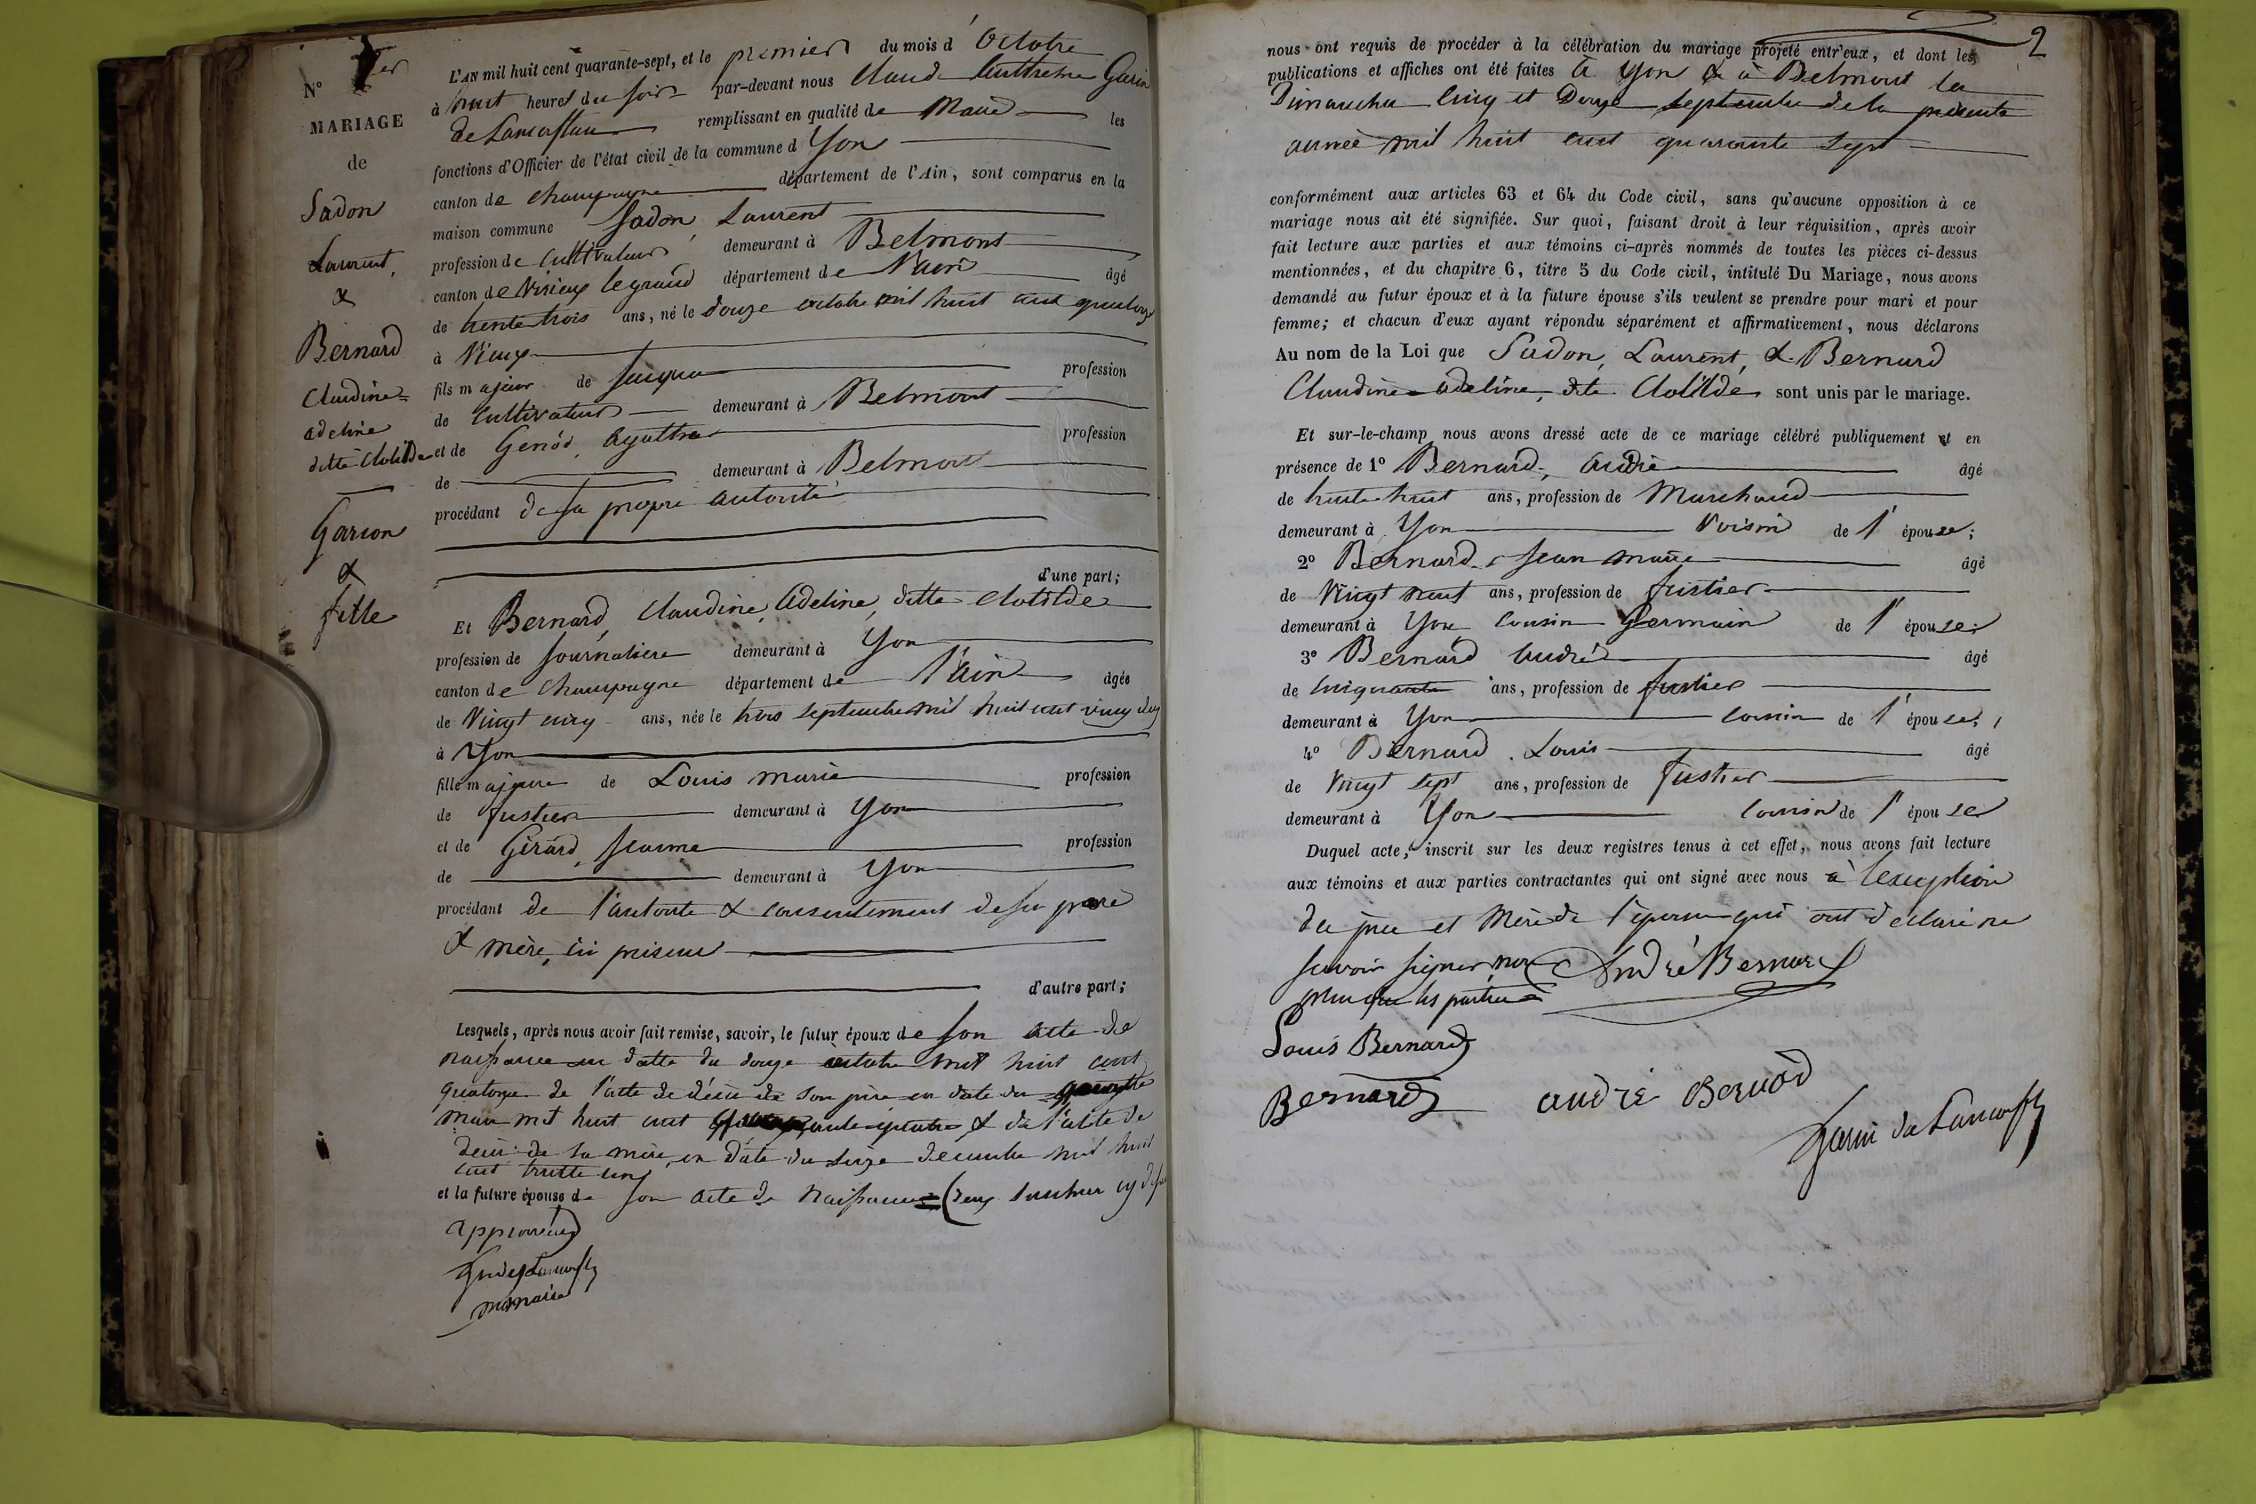 N° 1er
MARIAGE
de
Sadon
Laurent,
&
Bernard
Claudine
adeline
ditte Clotilde
Garcon
&
fille
L'AN mil huit cent quarante-sept, et le premier du mois d'Octobre
à huit heures du soir par-devant nous Claude Anthelme Garin
de Lamorflan remplissant en qualité de Maire les
fonctions d'Officier de l'état civil de la commune d Yon
canton de Champagne département de l'Ain, sont comparus en la
maison commune Sadon, Laurent
profession de Cultivateur demeurant à Belmont
canton de Virieux legrand département de l'ain âgé
de trente trois ans, né le douze octobre mil huit cent quatorze
à Vieux
fils majeur de Jacques
profession
de Cultivateur demeurant à Belmont
et de Genod, Agathe
profession
de demeurant à Belmont
procédant de sa propre autorité
d'une part;
Et Bernard, Claudine, Adeline, ditte Clotilde
profession de Journaliere demeurant à Yon
canton de Champagne département de l'ain âgée
de Vingt cinq ans, née le trois septembre mil huit cent vingt deux
à Yon
fille majeure de Louis marie profession
de fustier demeurant à Yon
et de Gérard, Jeanne profession
de demeurant à Yon
procédant de l'autorité & consentement de ses père
& mère, ici présens
d'autre part;
Lesquels, après nous avoir fait remise, savoir, le futur époux de son acte de
naissance en datte du douze octobre mil huit cent
quatorze de l'acte de décès de son père en date du
mars mil huit cent quatre & de l'acte de
décès de sa mère, en date du seize décembre mil huit
cent trente un
et la future épouse de son acte de naissance (deux
approuvées)
maire
2
nous ont requis de procéder à la célébration du mariage projeté entr'eux, et dont les
publications et affiches ont été faites à Yon & à Belmont les
Dimanches cinq et Douze septembre de la présente
année mil huit cent quarante sept
conformément aux articles 63 et 64 du Code civil, sans qu'aucune opposition à ce
mariage nous ait été signifiée. Sur quoi, faisant droit à leur réquisition, après avoir
fait lecture aux parties et aux témoins ci-après nommés de toutes les pièces ci-dessus
mentionnées, et du chapitre 6, titre 5 du Code civil, intitulé Du Mariage, nous avons
demandé au futur époux et à la future épouse s'ils veulent se prendre pour mari et pour
femme; et chacun d'eux ayant répondu séparément et affirmativement, nous déclarons
Au nom de la Loi que Sadon, Laurent, & Bernard
Claudine Adeline, dite Clotilde sont unis par le mariage.
Et sur-le-champ nous avons dressé acte de ce mariage célébré publiquement et en
présence de 1° Bernard, André âgé
de trente huit ans, profession de Marchand
demeurant à Yon Voisin de l'épouse;
2° Bernard, Jean marie âgé
de Vingt neuf ans, profession de fustier
demeurant à Yon Cousin Germain de l'épouse;
3° Bernard André âgé
de Cinquante ans, profession de fustier
demeurant à Yon Cousin de l'épouse;
4° Bernard, Louis âgé
de Vingt sept ans, profession de fustier
demeurant à Yon Cousin de l'épouse
Duquel acte, inscrit sur les deux registres tenus à cet effet, nous avons fait lecture
aux témoins et aux parties contractantes qui ont signé avec nous à l'exception
des père et Mère de l'épouse qui ont declaré ne
savoir signer non
plus que les parties
André Bernard
Louis Bernard
Bernard
André Bernod
Garin de Lamorfl